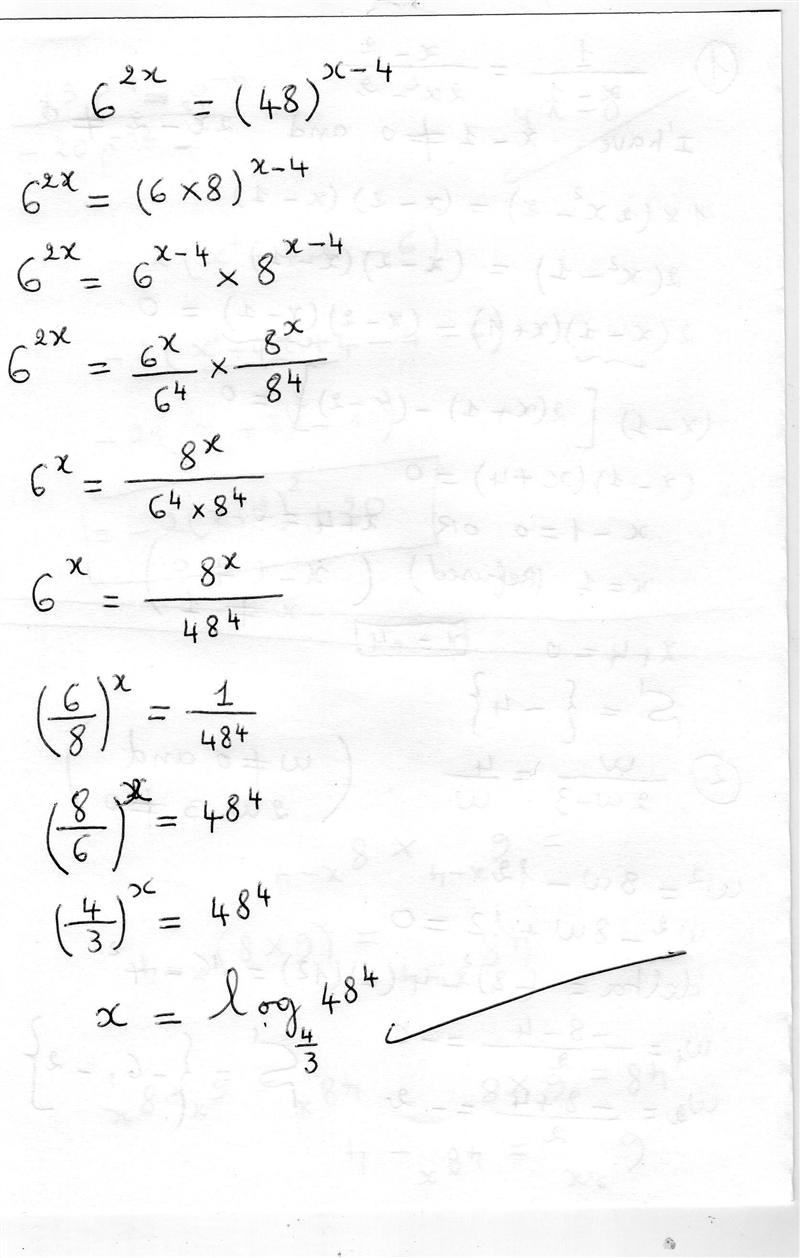 6^{2x} = (48)^{x-4}
6^{2x} = (6 × 8)^{x-4}
6^{2x} = 6^{x-4} × 8^{x-4}
6^{2x} = \frac{6^x}{6^4} × \frac{8^x}{8^4}
6^x = \frac{8^x}{6^4 × 8^4}
6^x = \frac{8^x}{48^4}
(\frac{6}{8})^x = \frac{1}{48^4}
(\frac{8}{6})^x = 48^4
(\frac{4}{3})^x = 48^4
x = log_{\frac{4}{3}} 48^4